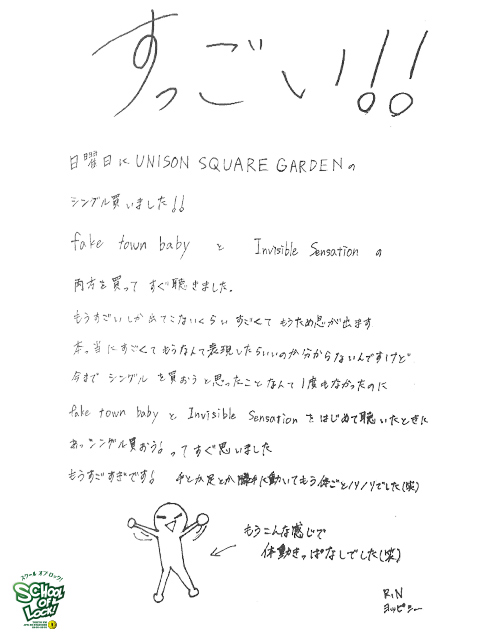 すっごい!!
日曜日に UNISON SQUARE GARDENの
シングル買いました!!
fake town baby と Invisible Sensation の
両方を買って すぐ聴きました。
もうすごいしか出てこないくらい すごくて もうため息が出ます
本当にすごくてもうなんて表現したらいいのか分からないんですけど
今まで シングル を買おうと思ったことなんて1度もなかったのに
fake town baby と Invisible Sensation をはじめて聴いたときに
あっシングル買おう!ってすぐ思いました
もうすごすぎです! 手とか足とか勝手に動いてもう体ごとノリノリでした(笑)
もうこんな感じで
体動きっぱなしでした(笑)
スクール オブ ロック!
SCHOOL
OF
LOCK!
RiN
ヨッピー